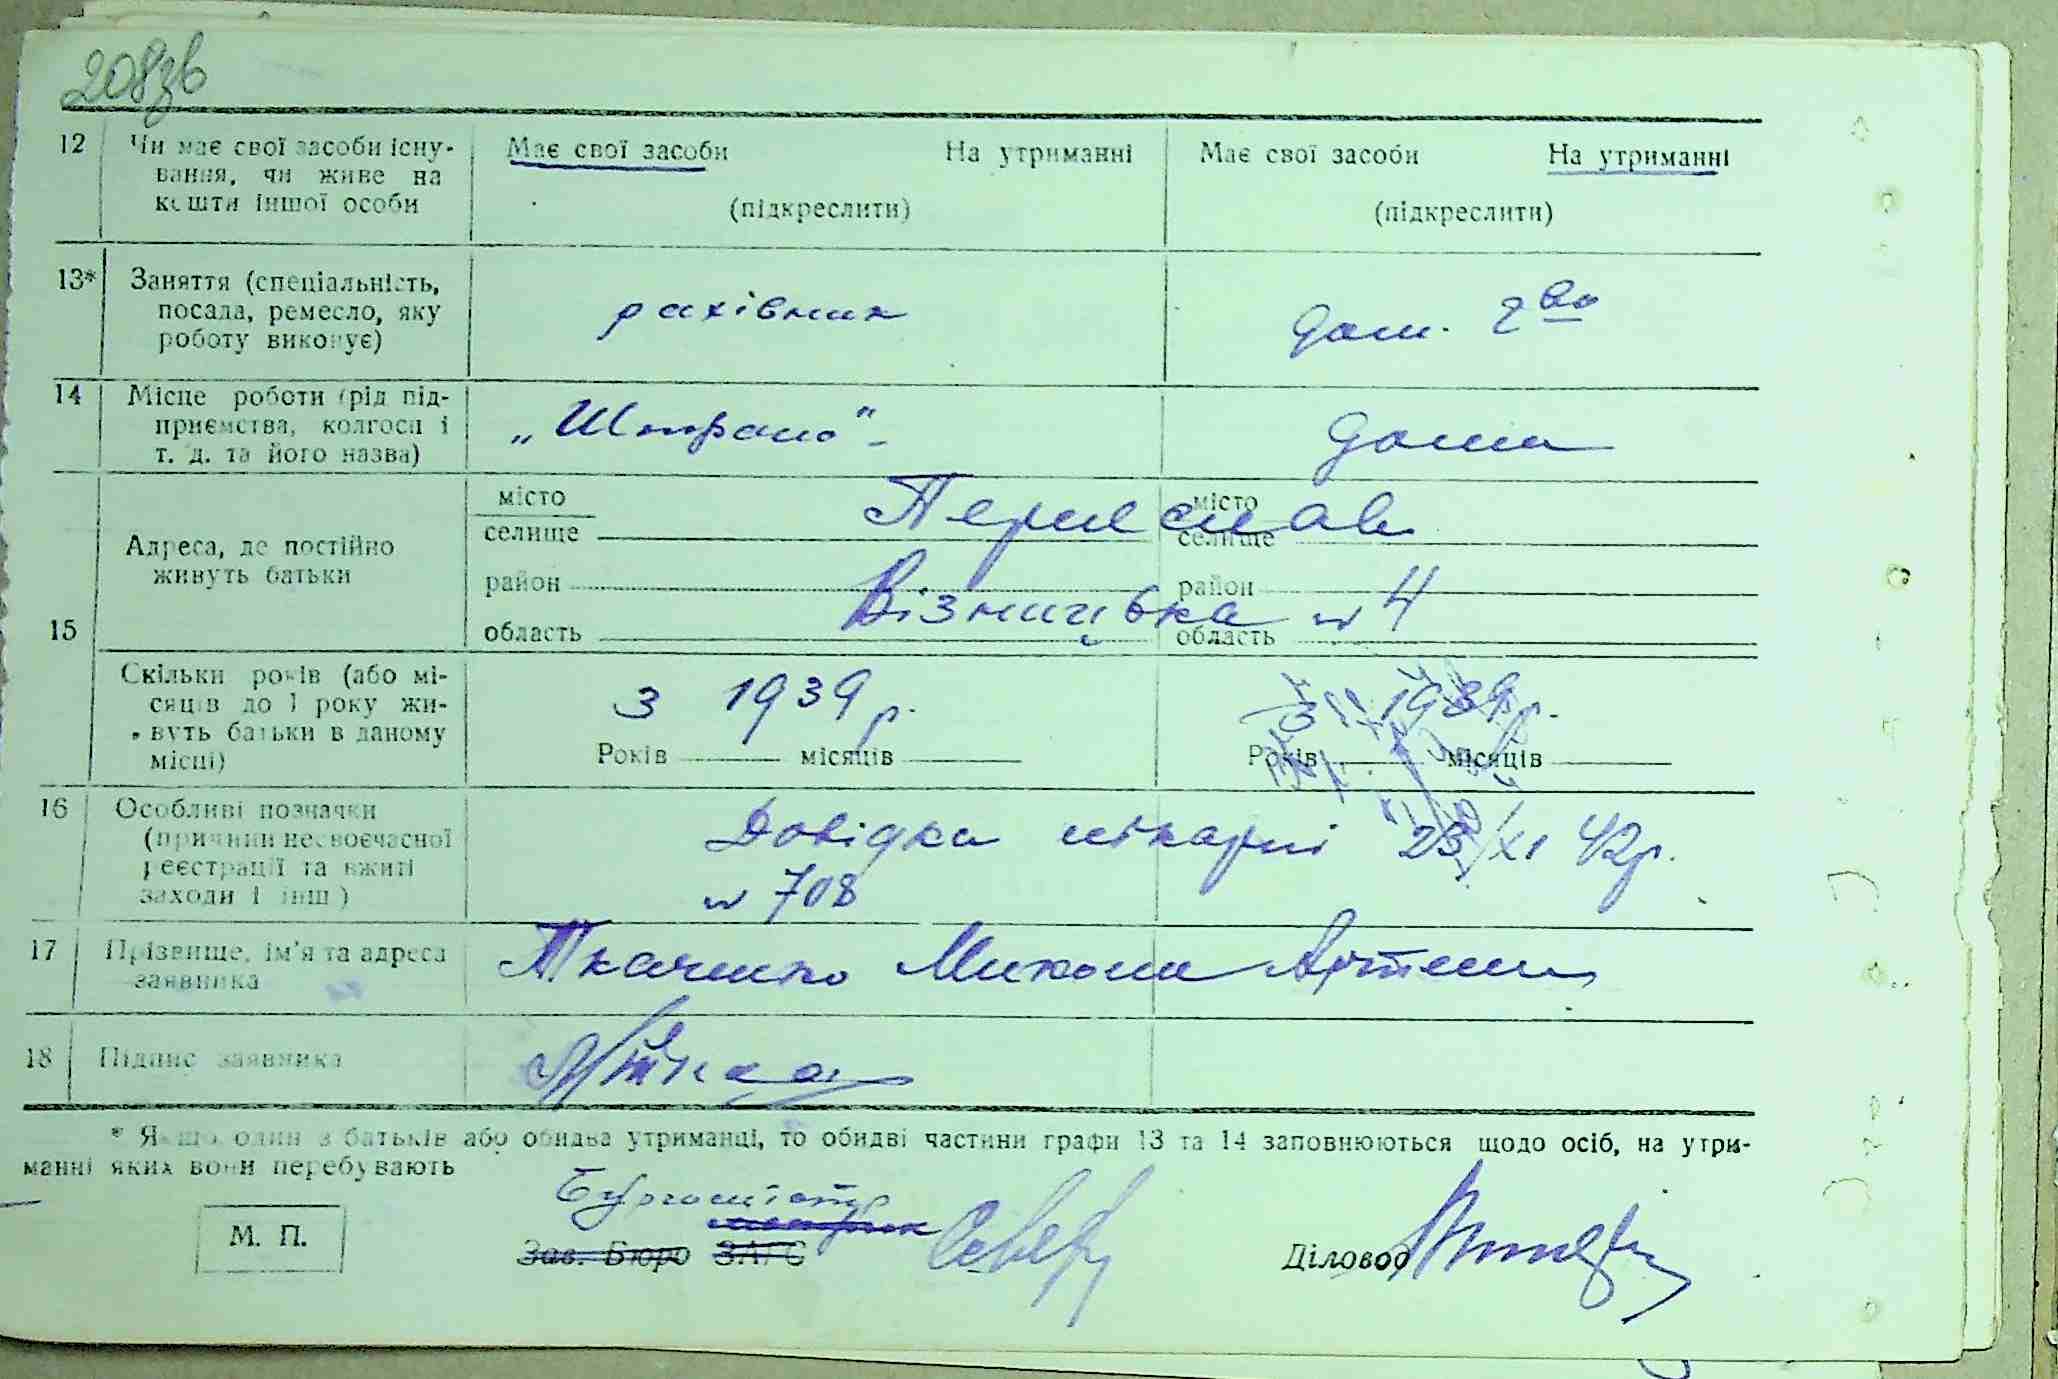 208зв
12 Чи має свої засоби існу-
вання, чи живе на
кошти іншої особи
Має свої засоби На утриманні
(підкреслити)
Має свої засоби На утриманні
(підкреслити)
13* Заняття (спеціальність,
посада, ремесло, яку
роботу виконує)
рахівник
дом. г-во
14 Місце роботи (рід під-
приємства, колгосп і
т. д. та його назва)
дома
15
Адреса, де постійно
живуть батьки
місто
селище
район
область
місто
селище
район
область
Переяслав
Візничівка № 4
Скільки років (або мі-
сяців до 1 року жи-
вуть батьки в даному
місці)
з 1939 р.
Років місяців
з 1939 р.
Років місяців
16 Особливі позначки
(причини несвоєчасної
реєстрації та вжиті
заходи і інш.)
Довідка лікарні 23/XI 42р.
№ 708
17 Прізвище, ім'я та адреса
заявника
Ткаченко Микола Артем
18 Підпис заявника
* Якщо один з батьків або обидва утриманці, то обидві частини графи 13 та 14 заповнюються щодо осіб, на утри-
манні яких вони перебувають
М. П.
Бургомістр
Зав. Бюро ЗАГС
Діловод